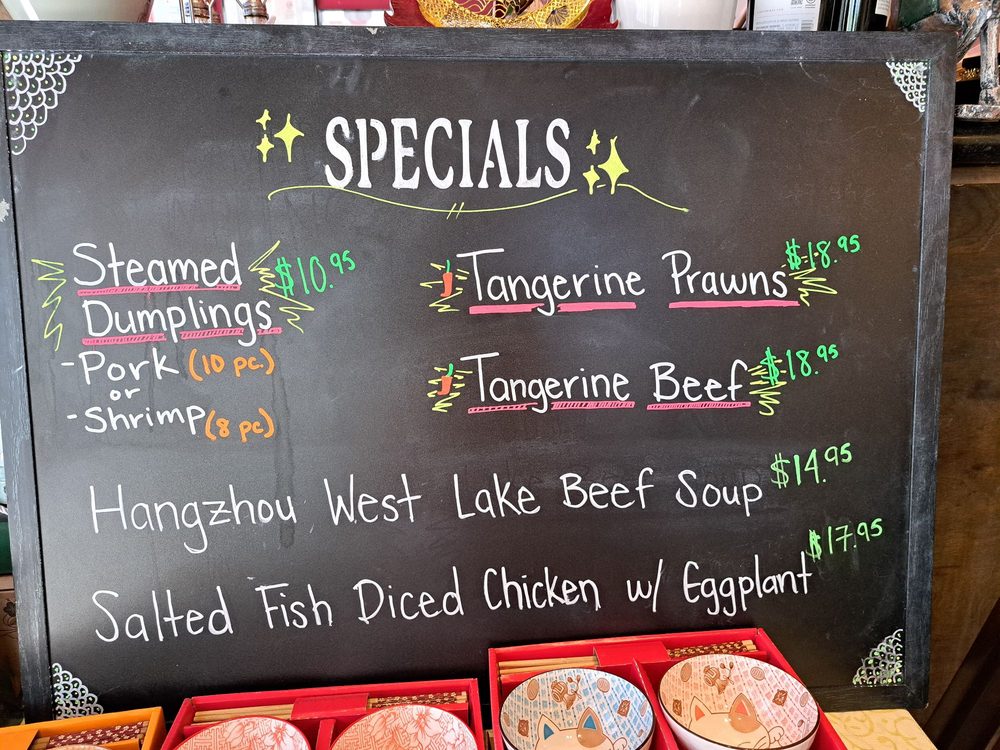 SPECIALS
Steamed $10.95
Dumplings
- Pork (10 pc.)
or
- Shrimp (8 pc)
Tangerine Prawns $18.95
Tangerine Beef $18.95
Hangzhou West Lake Beef Soup $14.95
Salted Fish Diced Chicken w/ Eggplant $17.95